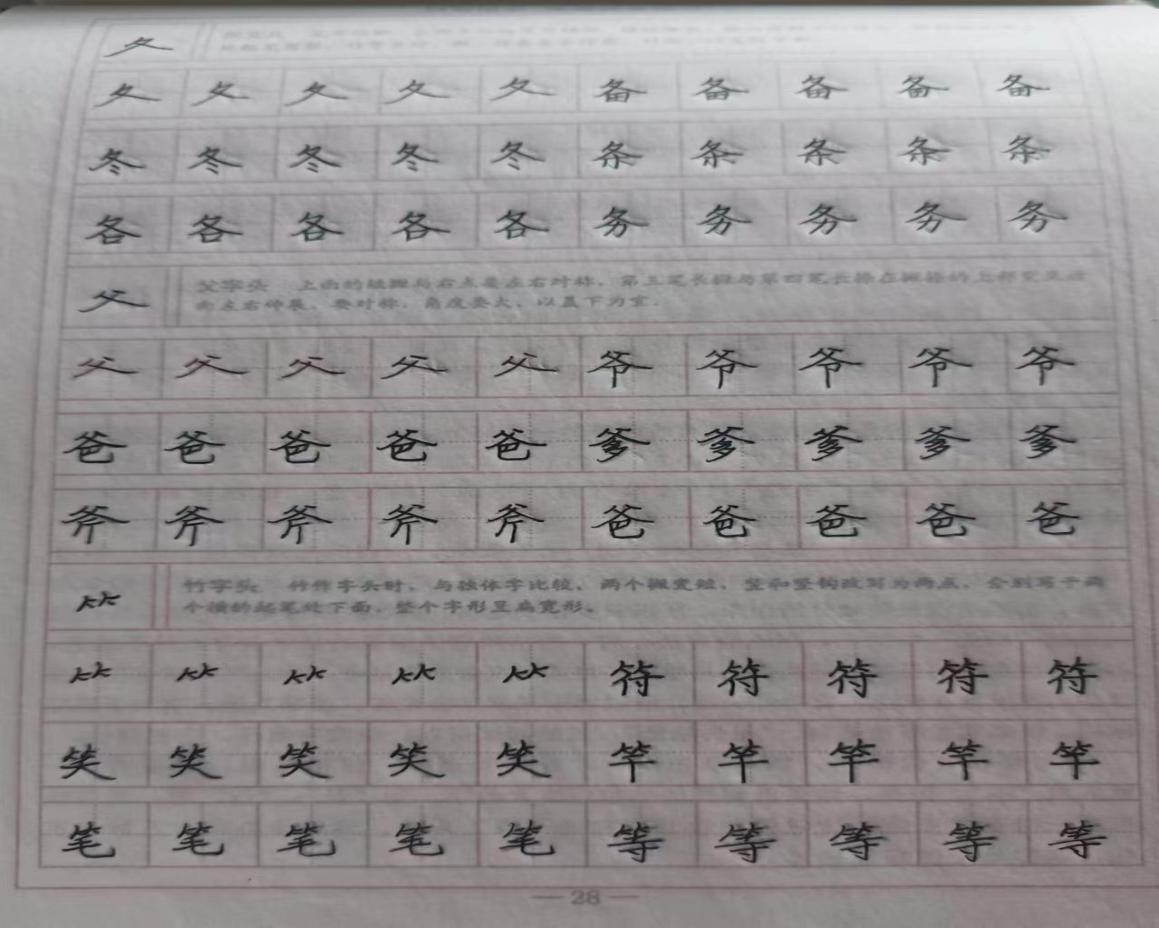 夂
夂 夂 夂 夂 夂 备 备 备 备 备
冬 冬 冬 冬 冬 条 条 条 条 条
各 各 各 各 各 务 务 务 务 务
父 父字头 上面的短撇与右点要左右对称，第三笔长撇与第四笔长捺在撇捺的上部交叉后
向左右伸展，要对称，角度要大，以盖下为宜。
父 父 父 父 父 爷 爷 爷 爷 爷
爸 爸 爸 爸 爸 爹 爹 爹 爹 爹
斧 斧 斧 斧 斧 爸 爸 爸 爸 爸
⺮ 竹字头 竹作字头时，与独体字比较，两个撇变短，竖和竖钩改写为两点，分别写于两
个横的起笔处下面，整个字形呈扁宽形。
⺮ ⺮ ⺮ ⺮ ⺮ 符 符 符 符 符
笑 笑 笑 笑 笑 竿 竿 竿 竿 竿
笔 笔 笔 笔 笔 等 等 等 等 等
28